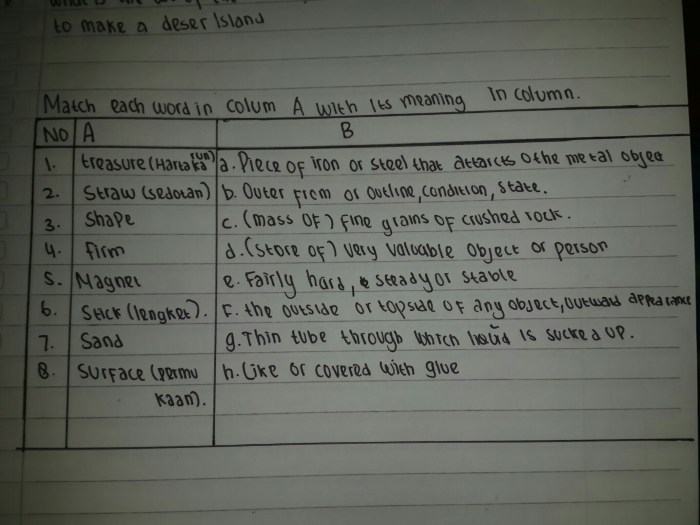 to make a deser Island
Match each word in colum A with Its meaning In column.
NO A B
1. treasure (Harta karun) a. Piece of iron or steel that attarcts othe metal objec
2. Straw (sedotan) b. Outer from or outline, condition, state.
3. Shape c. (mass OF) fine grains of crushed rock.
4. firm d. (store of) very valuable object or person
5. Magnet e. Fairly hard, steady or stable
6. Stick (lengket). F. the outside or topside of any object, outward appearance
7. Sand g. Thin tube through which liquid is sucked up.
8. Surface (permu h. Like or covered with glue
kaan).